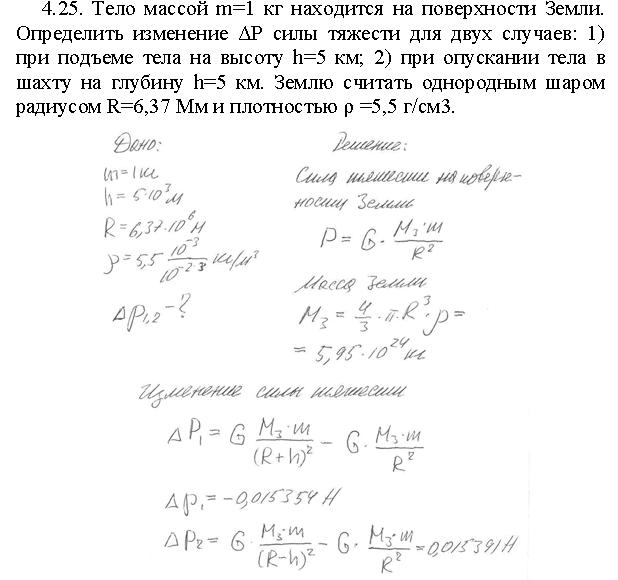 4.25. Тело массой m=1 кг находится на поверхности Земли.
Определить изменение ΔP силы тяжести для двух случаев: 1)
при подъеме тела на высоту h=5 км; 2) при опускании тела в
шахту на глубину h=5 км. Землю считать однородным шаром
радиусом R=6,37 Мм и плотностью ρ =5,5 г/см3.
Дано:
m=1 кг
h = 5·10³ м
R = 6,37·10⁶ м
ρ = 5,5 10⁻³/10⁻²·³ кг/м³
ΔP₁,₂ - ?
Решение:
Сила тяжести на поверх-
ности Земли
P = G · M₃·m/R²
Масса Земли
M₃ = 4/3 · π·R³·ρ =
= 5,95·10²⁴ кг
Изменение силы тяжести
ΔP₁ = G M₃·m/(R+h)² - G · M₃·m/R²
ΔP₁ = -0,015354 Н
ΔP₂ = G · M₃·m/(R-h)² - G · M₃·m/R² = 0,015391 Н